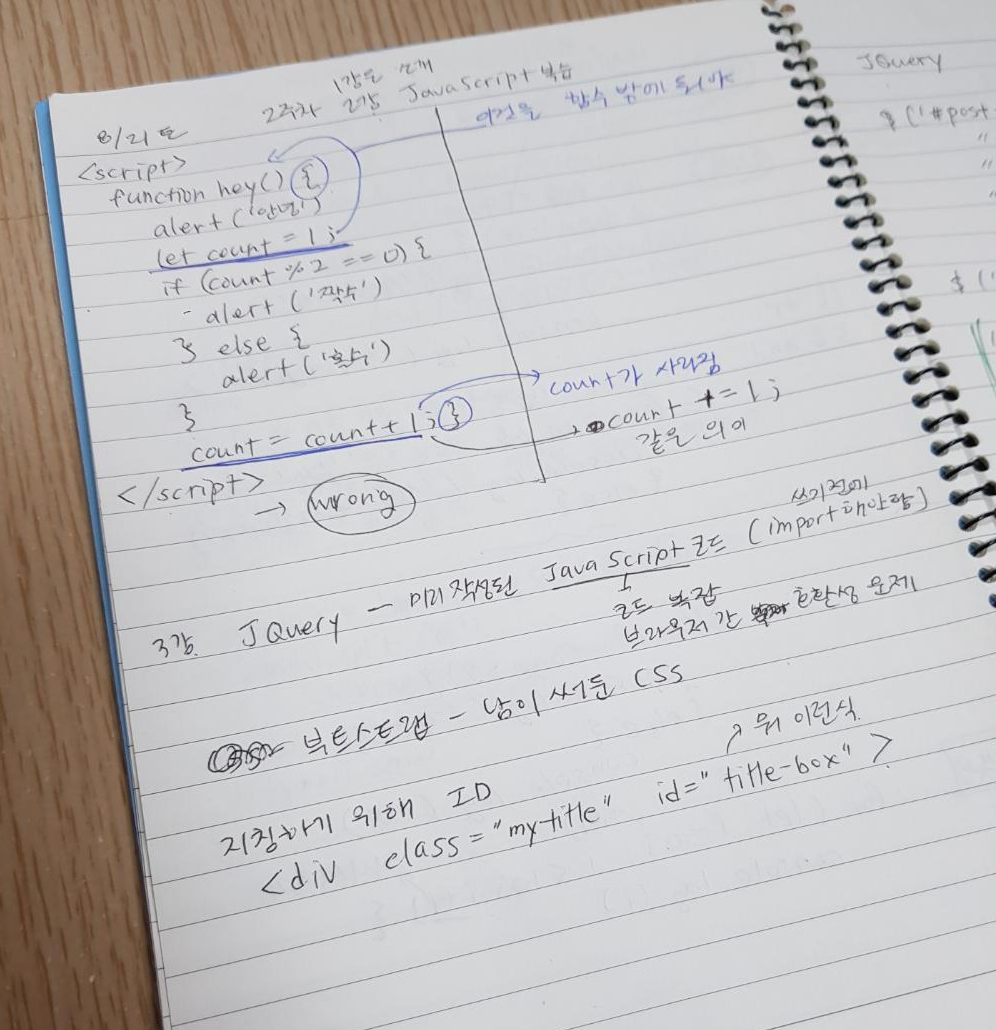 1강은 소개
2주차 2강 JavaScript 복습
8/21 토
이것을 함수 밖에 둬야
<script>
function hey() {
alert('안녕')
let count = 1;
if (count % 2 == 0) {
- alert('짝수')
} else {
alert('홀수')
}
count = count+1; }
</script>
→ wrong
count가 사라짐
count += 1;
같은 의미
3강. JQuery — 미리 작성된 JavaScript 코드 (import해야함)
쓰기전에
코드 복잡
브라우저 간 호환성 문제
부트스트랩 - 남이 써둔 CSS
지칭하기 위해 ID
뭐 이런식
<div class="my-title" id="title-box">
JQuery
$('#post
"
"
"
$('